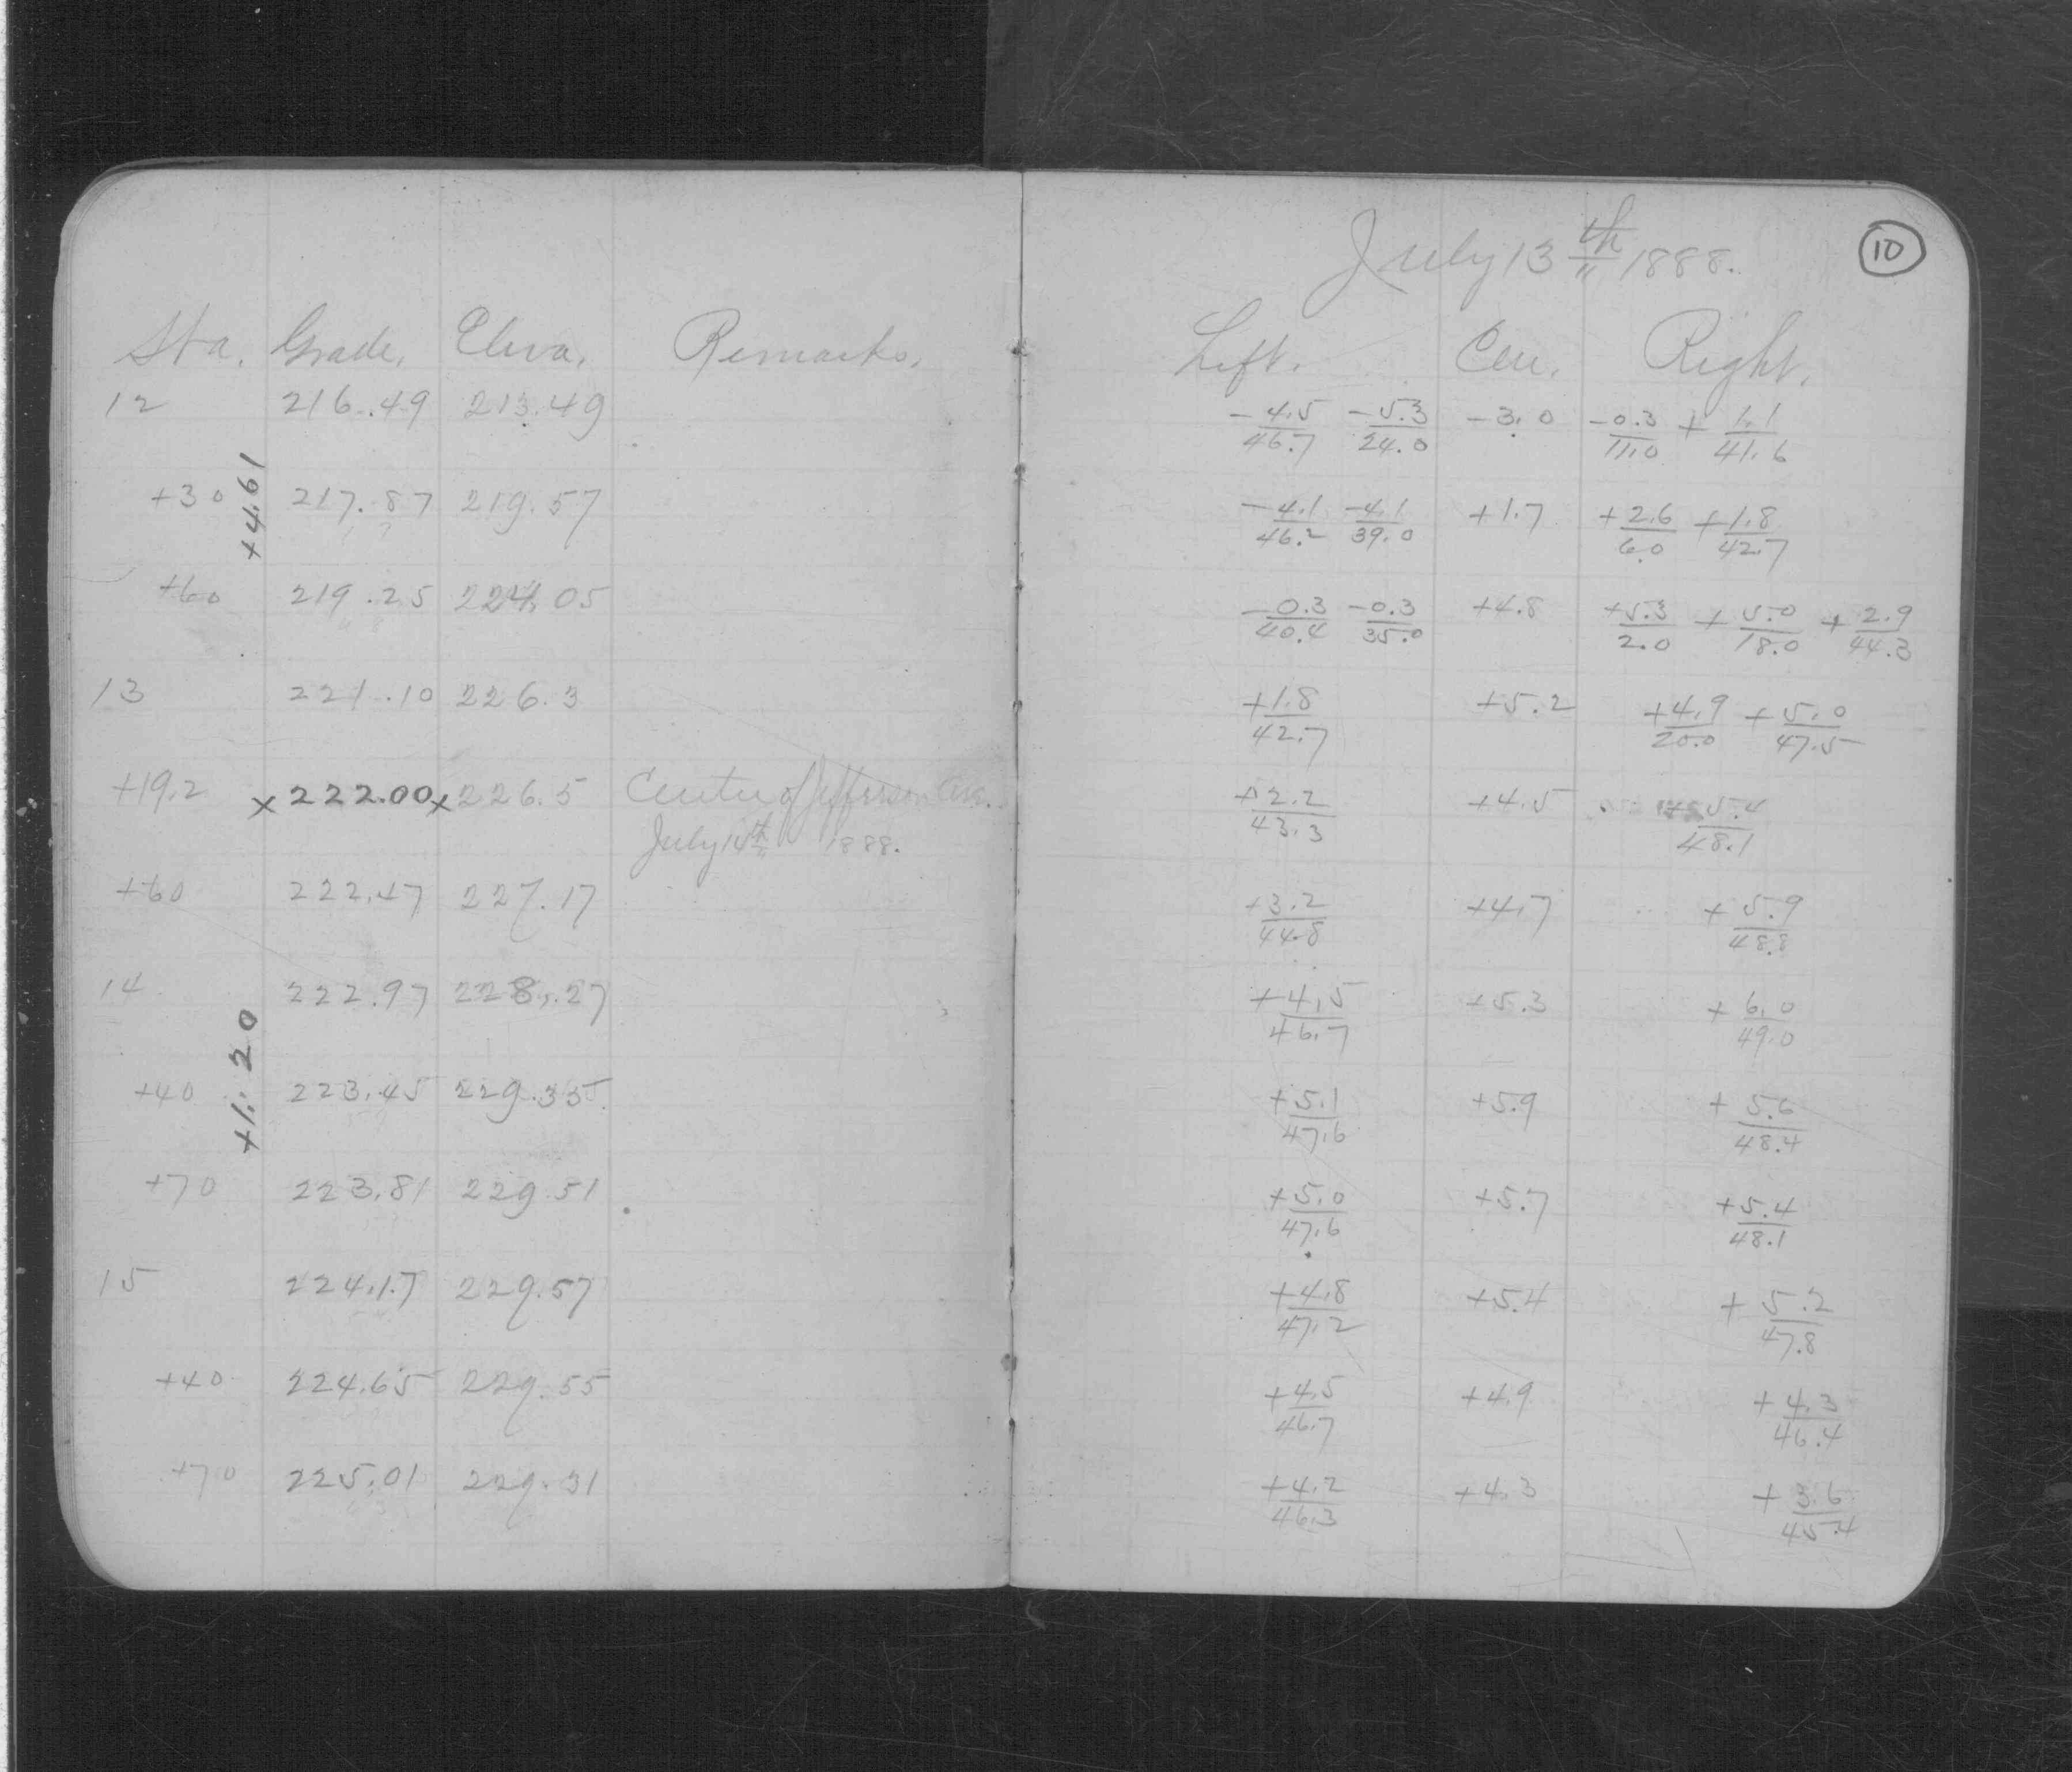 July 13th 1888.
10
Sta. Grade. Eleva. Remarks. Left. Cen. Right.
12 216.49 213.49 -4.5/46.7 -5.3/24.0 -3.0 -0.3/11.0 +1.1/41.6
+4.61
+30 217.87 219.57 -4.1/46.2 -4.1/39.0 +1.7 +2.6/6.0 +1.8/42.7
+60 219.25 224.05 -0.3/40.4 -0.3/35.0 +4.8 +5.3/2.0 +5.0/18.0 +2.9/44.3
13 221.10 226.3 +1.8/42.7 +5.2 +4.9/20.0 +5.0/47.5
+19.2 x 222.00 x 226.5 Center of Jefferson Ave. +2.2/43.3 +4.5 +5.4/48.1
July 14th 1888.
+60 222.47 227.17 +3.2/44.8 +4.7 +5.9/48.8
14 222.97 228.27 +4.5/46.7 +5.3 +6.0/49.0
+1.20
+40 223.45 229.35 +5.1/47.6 +5.9 +5.6/48.4
+70 223.81 229.51 +5.0/47.6 +5.7 +5.4/48.1
15 224.17 229.57 +4.8/47.2 +5.4 +5.2/47.8
+40 224.65 229.55 +4.5/46.7 +4.9 +4.3/46.4
+70 225.01 229.31 +4.2/46.3 +4.3 +3.6/45.4